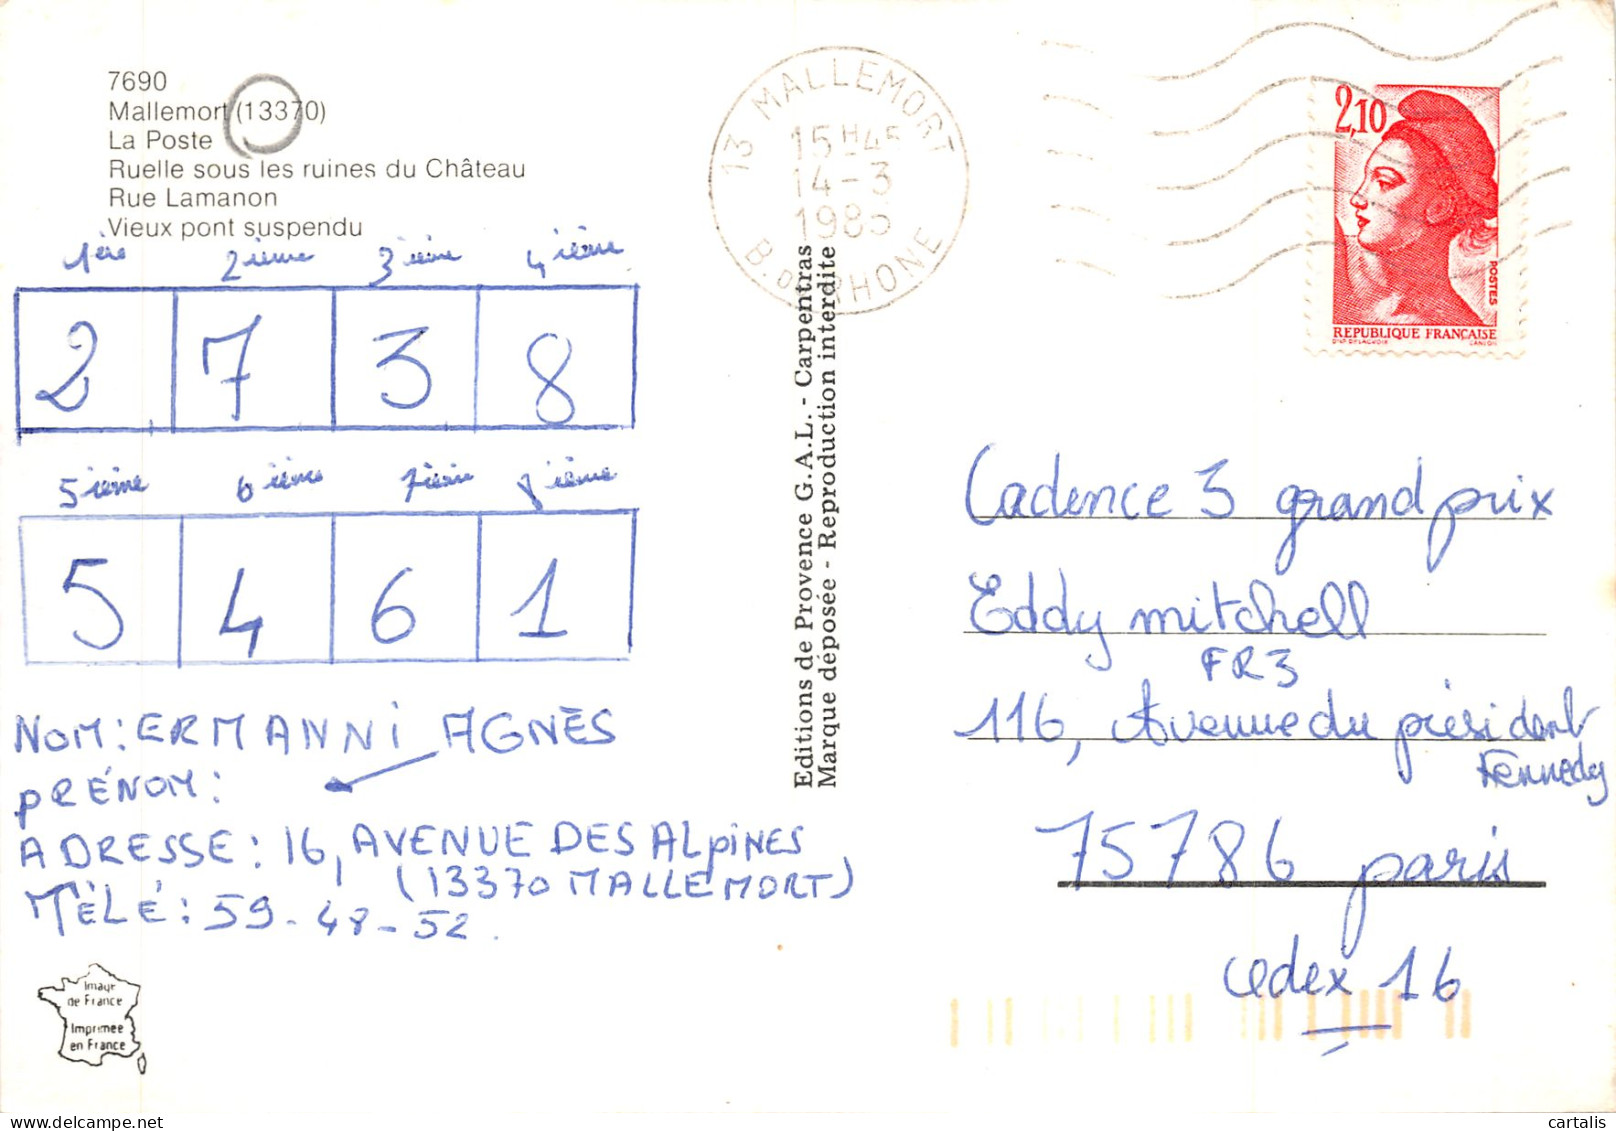 7690
Mallemort (13370)
La Poste
Ruelle sous les ruines du Château
Rue Lamanon
Vieux pont suspendu
1ère 2ième 3ième 4ième
2 7 3 8
5ième 6ième 7ième 8ième
5 4 6 1
NOM: ERMANNI AGNÈS
PRÉNOM:
ADRESSE: 16, AVENUE DES ALPINES
(13370 MALLEMORT)
TÈLÉ: 59-48-52.
Image
de France
Imprimee
en France
Editions de Provence G.A.L. - Carpentras
Marque déposée - Reproduction interdite
13 MALLEMORT
15H45
14-3
1985
B. DU RHONE
2,10
POSTES
REPUBLIQUE FRANÇAISE
Cadence 3 grand prix
Eddy mitchell
FR3
116, Avenue du président
Kennedy
75786 paris
cedex 16
cartalis